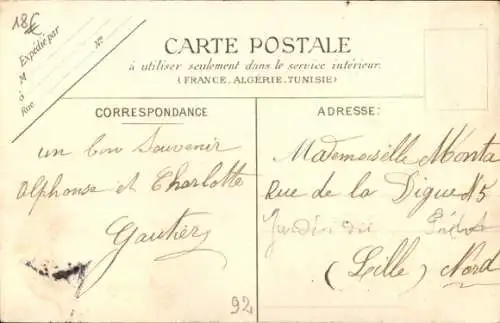 18€
Expédié par
M
à
Rue
N°
CARTE POSTALE
à utiliser seulement dans le service intérieur
(FRANCE, ALGÉRIE, TUNISIE)
CORRESPONDANCE
un bon Souvenir
Alphonse et Charlotte
Gautier
92
ADRESSE:
Mademoiselle Monta
Rue de la Digue N 5
(Lille) Nord